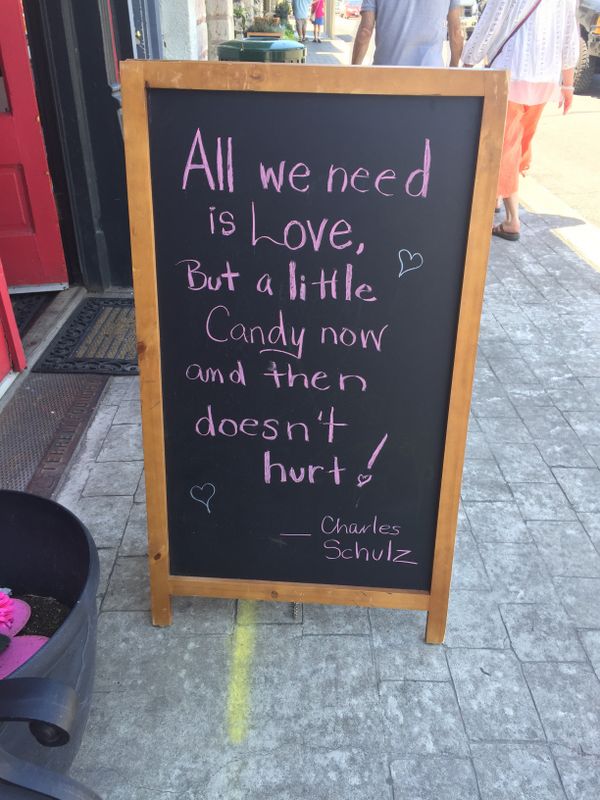 All we need
is Love,
But a little
Candy now
and then
doesn't
hurt!
— Charles
Schulz